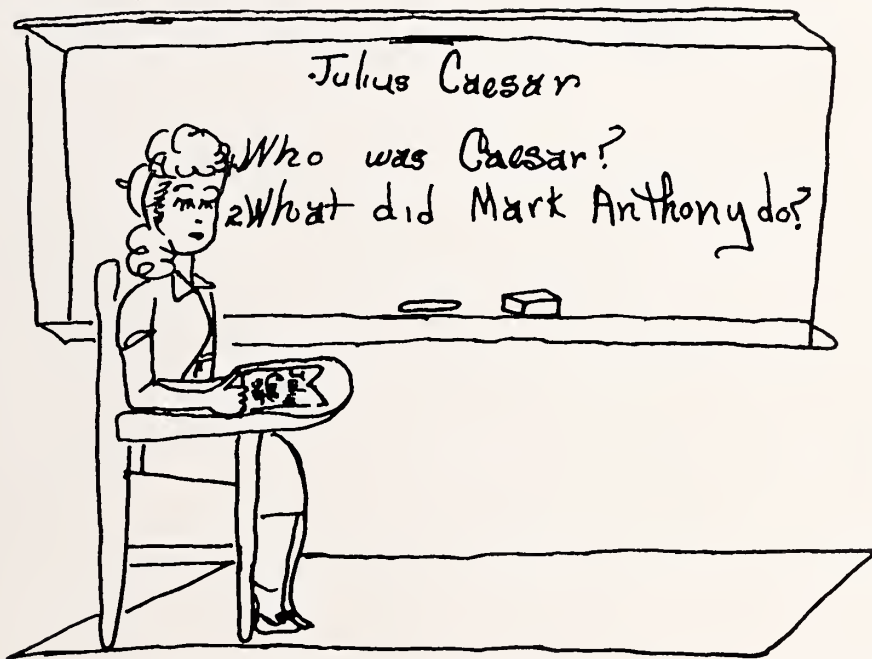 Julius Caesar
Who was Caesar?
2 What did Mark Anthony do?